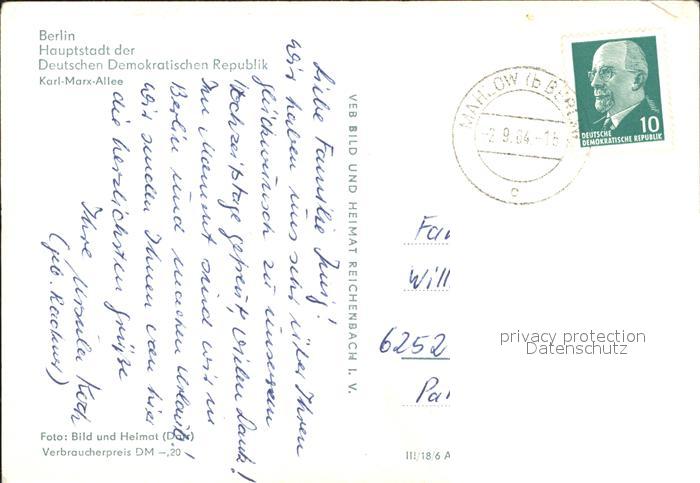 Berlin
Hauptstadt der
Deutschen Demokratischen Republik
Karl-Marx-Allee
Liebe Familie Jung!
Wir haben uns sehr über Ihren
Glückwunsch zu unserem
Hochzeitstage gefreut, vielen Dank!
Im Moment sind wir in
Berlin und machen Urlaub!
Wir senden Ihnen von hier
die herzlichsten Grüße
Ihre Ursula Koch
(geb. )
Foto: Bild und Heimat
Verbraucherpreis DM –,20
VEB BILD UND HEIMAT REICHENBACH I. V.
III/18/6 A
MAHLOW (b BERLIN
-2.9.64.-16
c
10
DEUTSCHE
DEMOKRATISCHE REPUBLIK
Fa
Will
6252
privacy protection
Datenschutz